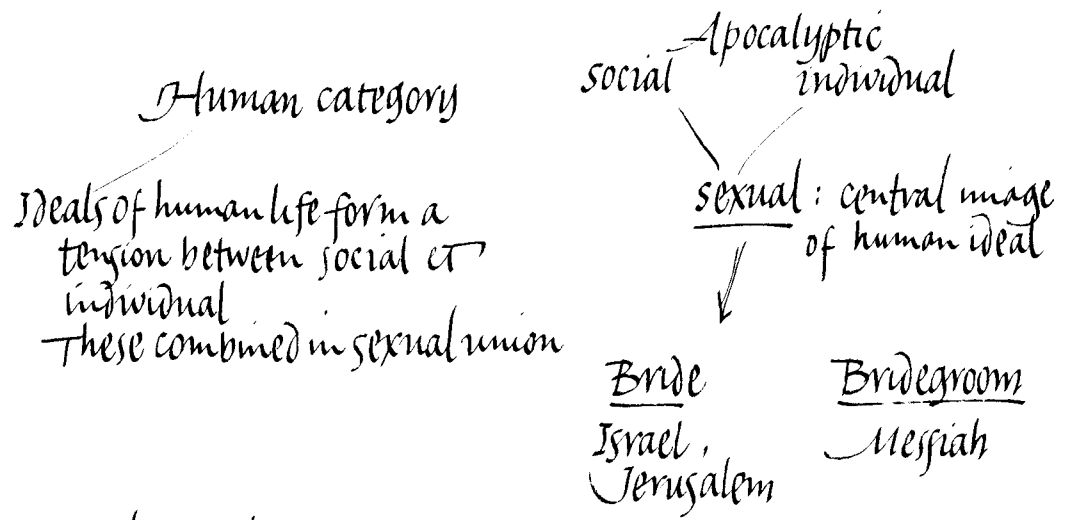 Human category
Ideals of human life form a
tension between social &
individual
These combined in sexual union
Apocalyptic
social individual
sexual : central image
of human ideal
Bride Bridegroom
Israel, Messiah
Jerusalem